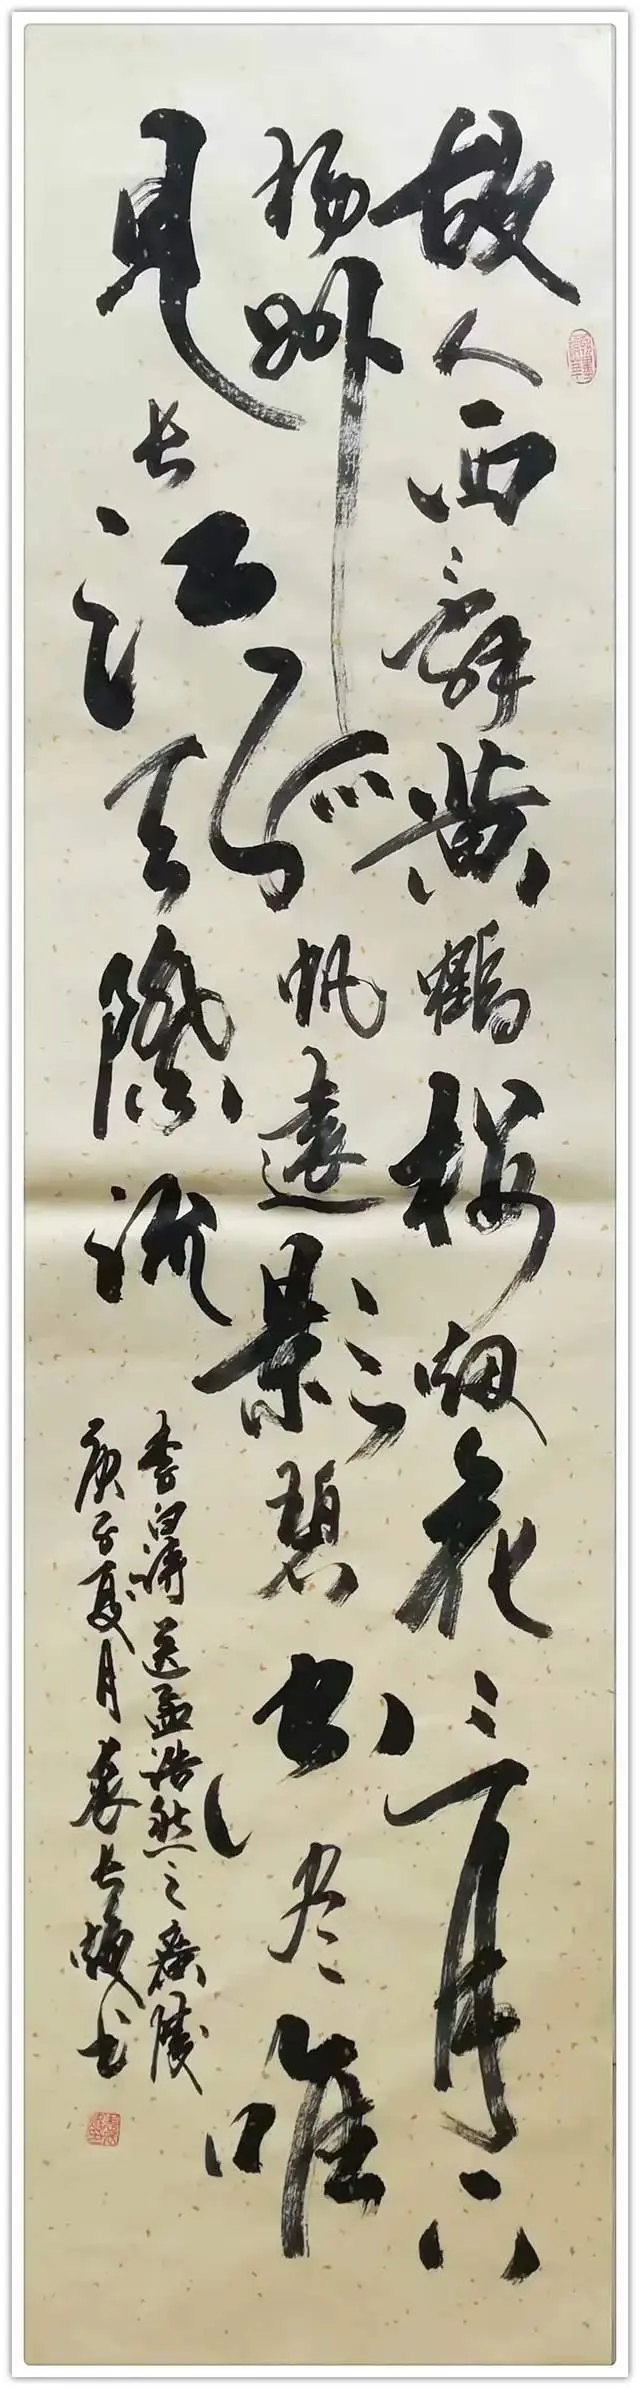 故人西辞黄鶴楼烟花三月下
扬州孤帆遠影碧空尽唯
见长江天際流
李白詩送孟浩然之廣陵
庚子夏月袁长书